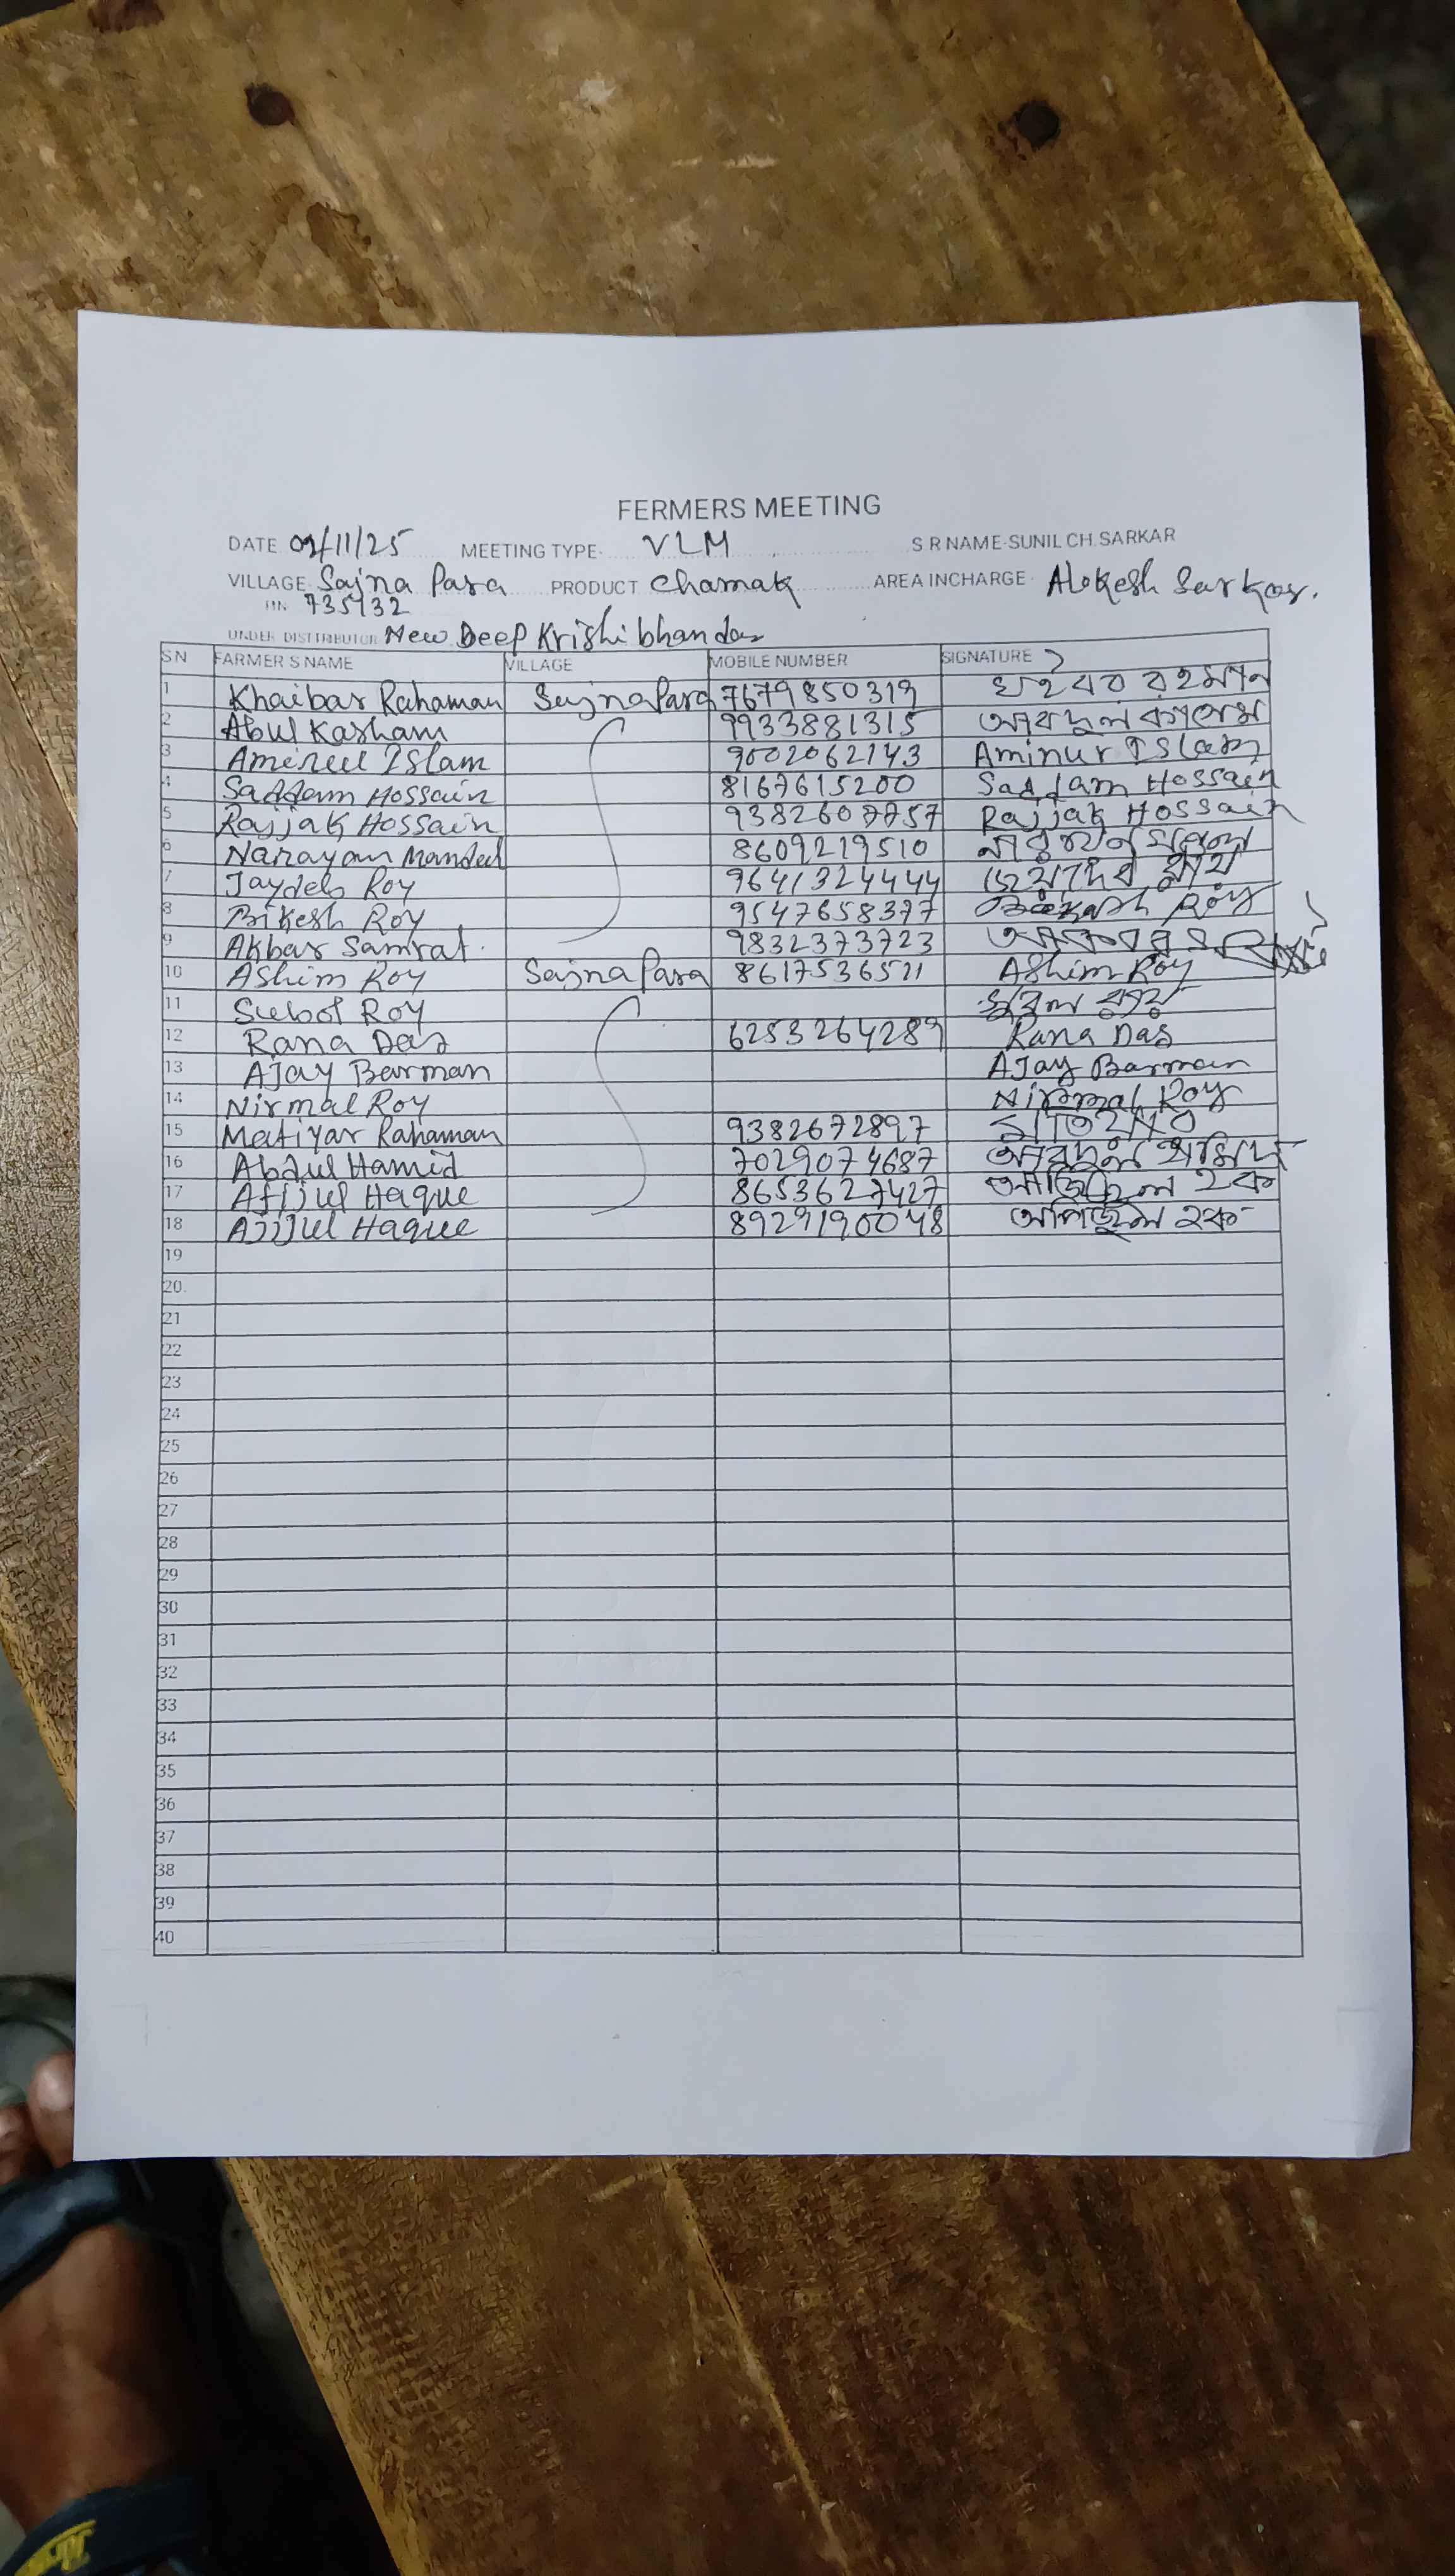 FERMERS MEETING
DATE 09/11/25 MEETING TYPE- VLM S R NAME-SUNIL CH. SARKAR
VILLAGE- Sajna Para PRODUCT Chamak AREA INCHARGE- Alokesh Sarkar.
PIN 735132
UNDER DISTTRIBUTOR New Deep Krishi bhandar
SN FARMER S NAME VILLAGE MOBILE NUMBER SIGNATURE
1 Khaibar Rahaman Sajna Para 7679850319 খাইবর রহমান
2 Abul Kasham 9933881315 আবদুল কাশেম
3 Amineel Islam 9002062143 Aminur Islam
4 Saddam Hossain 8167615200 Saddam Hossain
5 Rajjak Hossain 9382607757 Rajjak Hossain
6 Narayan Mandal 8609219510 নারায়ন মণ্ডল
7 Jaydeb Roy 9641324444 জয়দেব রায়
8 Bikesh Roy 9547658377 Roy
9 Akbar Samrat. 9832373723
10 Ashim Roy Sajna Para 8617536511 Ashim Roy
11 Subol Roy সুবল রায়
12 Rana Das 6253264289 Rana Das
13 AJay Barman AJay Barman
14 Nirmal Roy Nirmal Roy
15 Matiyar Rahaman 9382672897
16 Abdul Hamid 7029074687 আবদুল হামিদ
17 Afijul Haque 8653627427 হক
18 Ajijul Haque 8929190048 হক
19
20.
21
22
23
24
25
26
27
28
29
30
31
32
33
34
35
36
37
38
39
40